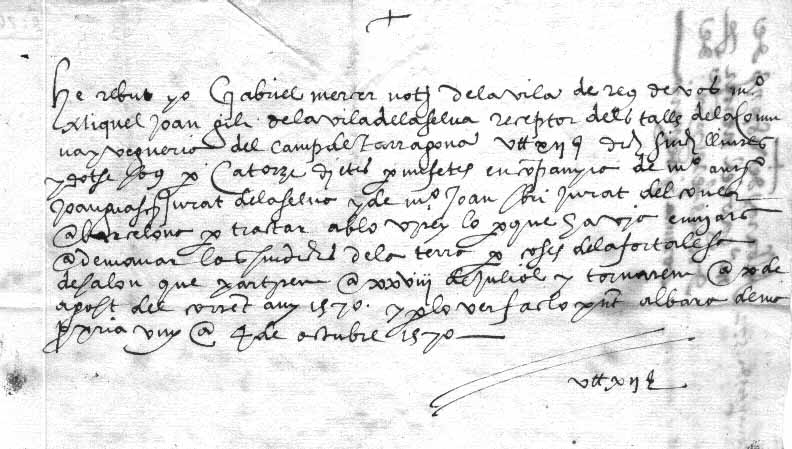 He rebut yo Gabriel mercer notj dela vila de reus de vos mº
Miquel Joan gili dela vila dela selva receptor dells talls dela Comu
na y vegueria del camp de Tarragona vtt xij q
y dotse sous p Catorze dietes p mi fetes en companyia de mº
Joan jurat dela selva y de mº Joan jurat del
@ barcelona p tractar ab lo virey lo p que havia enviar
@ demanar los sindichs dela terra p coses dela fortalesa
de salou que partirem @ xxviii de Juliol y tornarem @ x de
agost del corrent any 1570. y p lo ver fas lo pnt albara de ma
ppria vuy @ 4 de octubre 1570
vtt xij